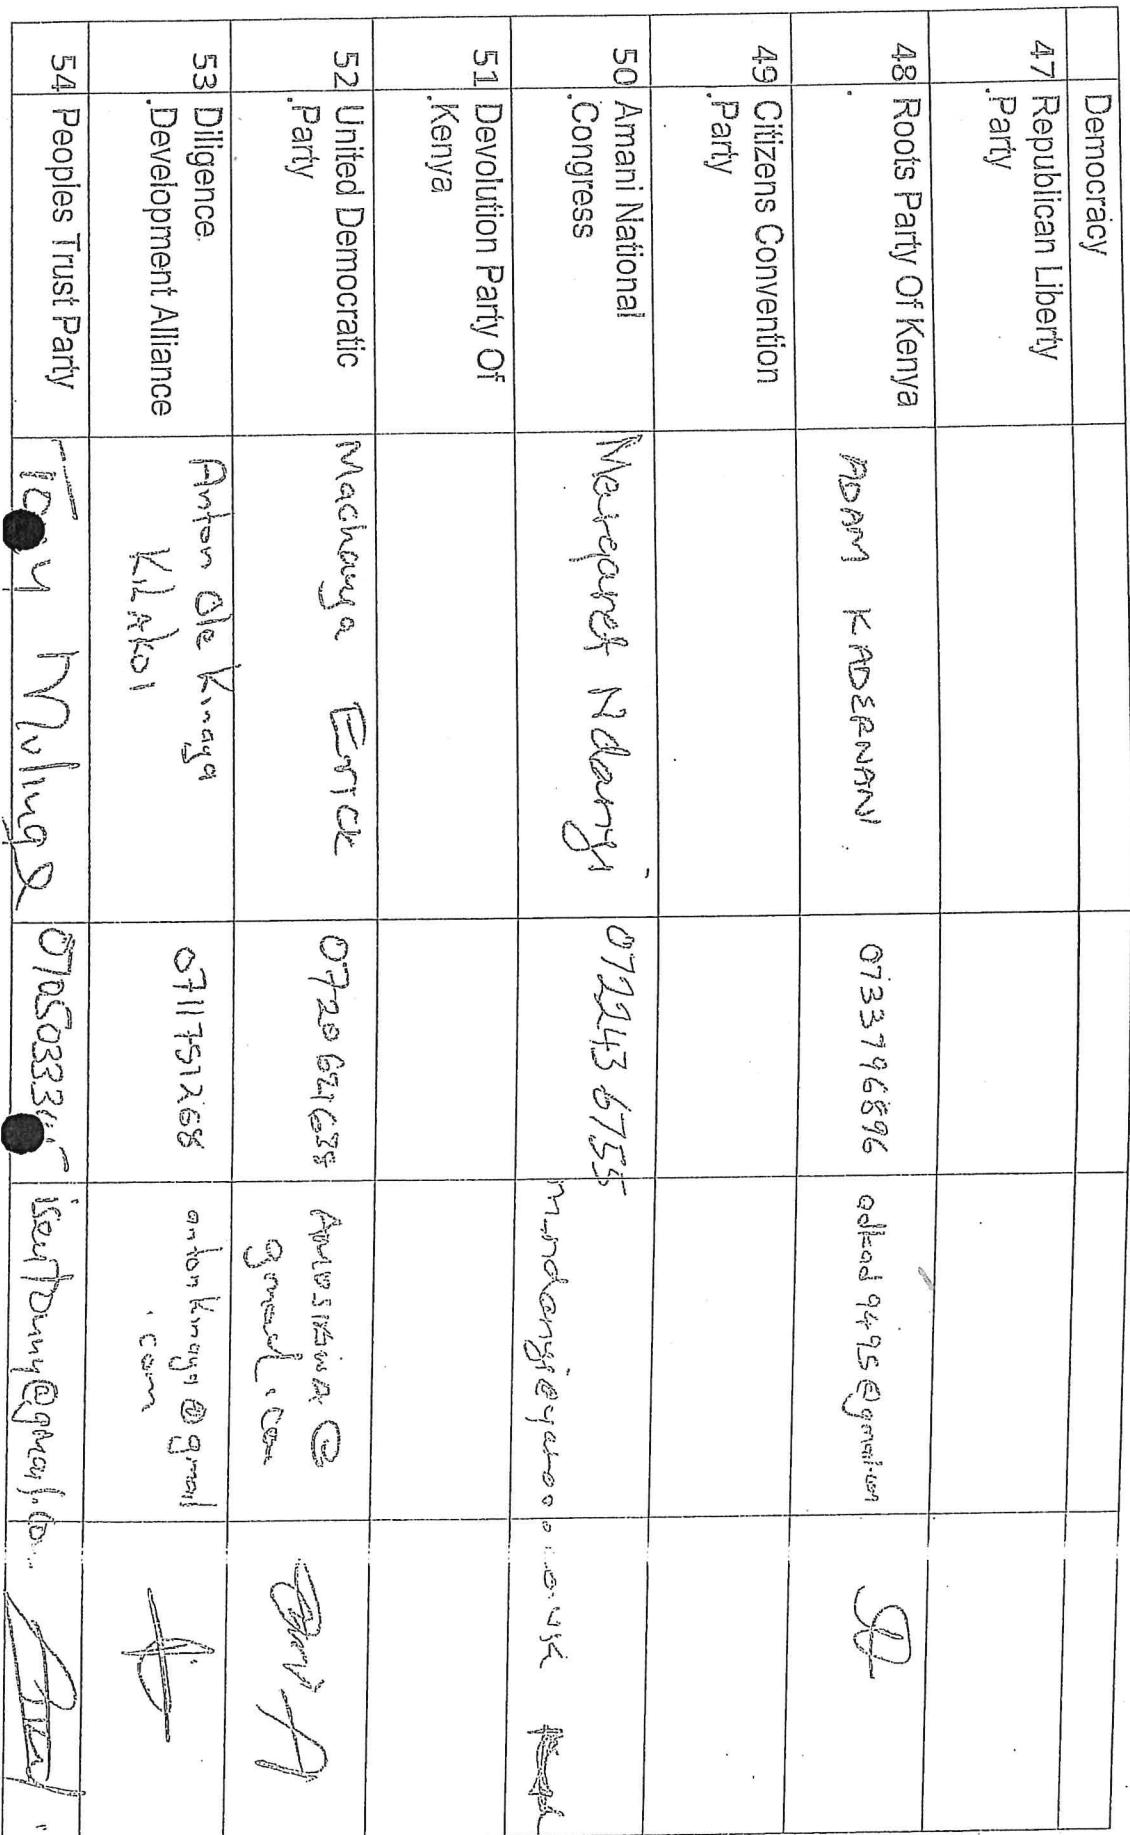 Democracy
47 Republican Liberty
Party
48 Roots Party Of Kenya
ADAM KADERNANI
0733796896
adkad9495@gmail.com
49 Citizens Convention
Party
50 Amani National
Congress
Margaret Ndanyi
0722436755
m_ndanyi@yahoo.co.uk
51 Devolution Party Of
Kenya
52 United Democratic
Party
Machanya Erick
0720621638
gmail.com
53 Diligence
Development Alliance
Anton Ole Kinaya
KiLAkoi
0711751268
antonkinaya@gmail
.com
54 Peoples Trust Party
Mulinge